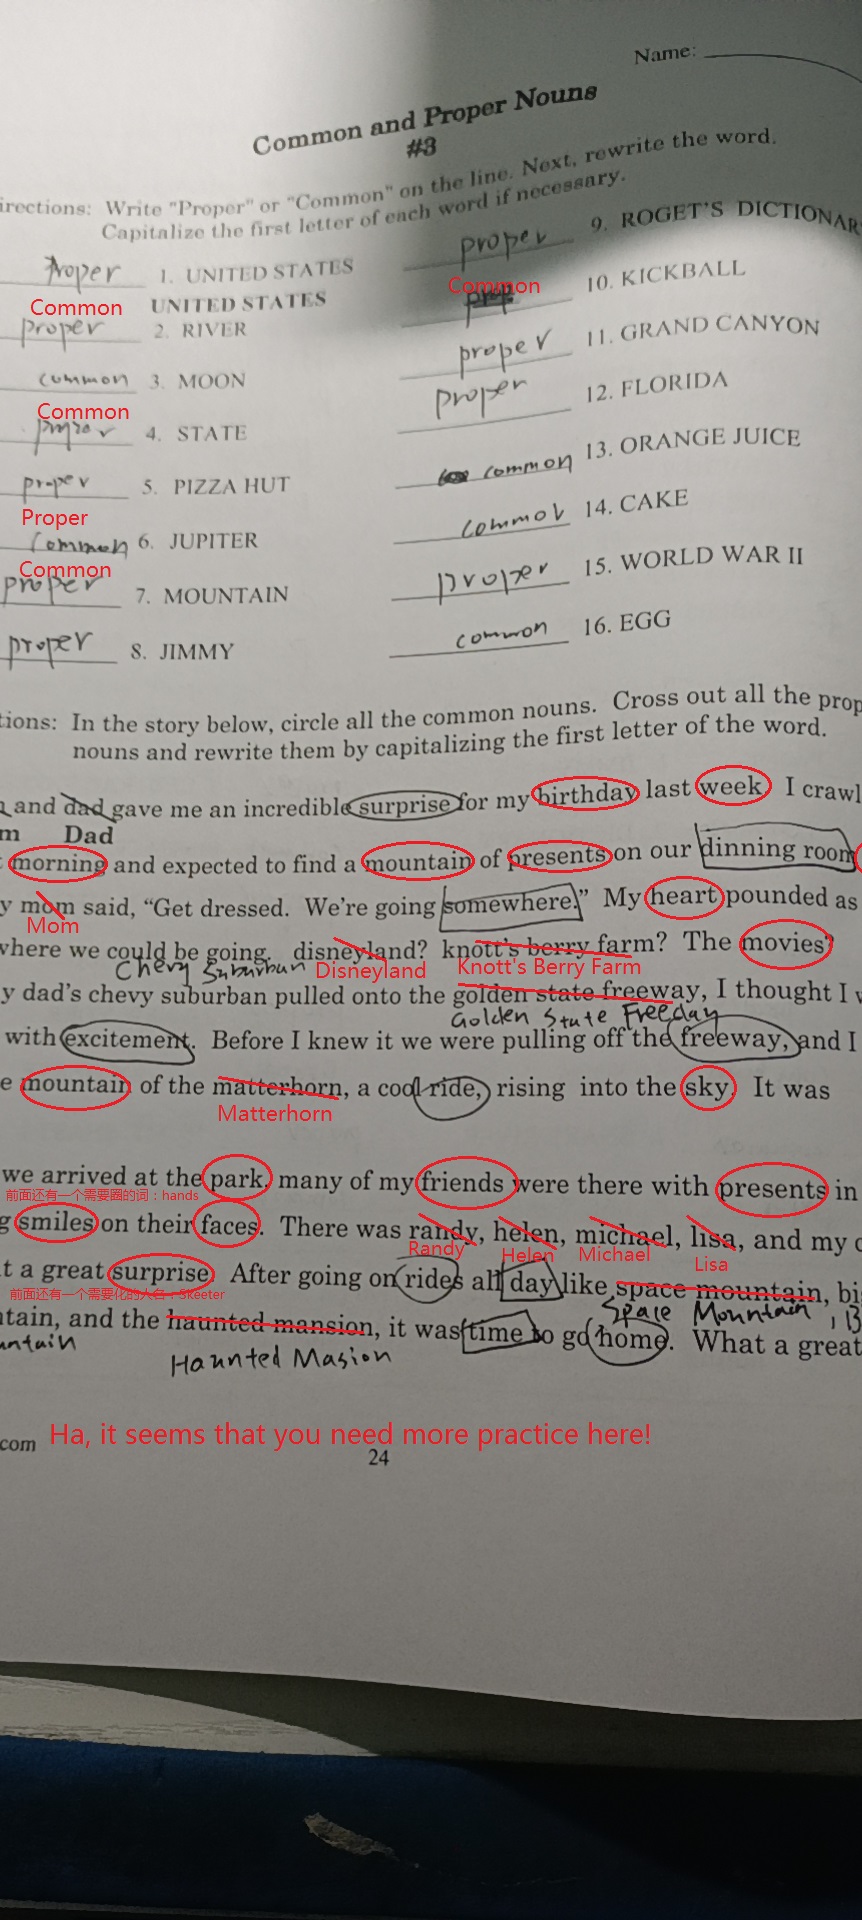 Name:
Common and Proper Nouns
#3
irections: Write "Proper" or "Common" on the line. Next, rewrite the word.
Capitalize the first letter of each word if necessary.
Proper 1. UNITED STATES
UNITED STATES
Common
proper 2. RIVER
common 3. MOON
Common
4. STATE
proper 5. PIZZA HUT
Proper
common 6. JUPITER
Common
proper 7. MOUNTAIN
proper 8. JIMMY
proper 9. ROGET'S DICTIONAR
Common
prop 10. KICKBALL
proper 11. GRAND CANYON
proper 12. FLORIDA
common 13. ORANGE JUICE
commov 14. CAKE
proper 15. WORLD WAR II
common 16. EGG
tions: In the story below, circle all the common nouns. Cross out all the prop
nouns and rewrite them by capitalizing the first letter of the word.
and dad gave me an incredible surprise for my birthday last week. I crawl
m Dad
morning and expected to find a mountain of presents on our dinning room
y mom said, "Get dressed. We're going somewhere." My heart pounded as
Mom
where we could be going. disneyland? knott's berry farm? The movies?
Chevy Suburban Disneyland Knott's Berry Farm
y dad's chevy suburban pulled onto the golden state freeway, I thought I w
Golden State Freeday
with excitement. Before I knew it we were pulling off the freeway, and I
e mountain of the matterhorn, a cool ride, rising into the sky. It was
Matterhorn
we arrived at the park, many of my friends were there with presents in
前面还有一个需要圈的词：hands
g smiles on their faces. There was randy, helen, michael, lisa, and my c
Randy Helen Michael Lisa
t a great surprise. After going on rides all day like space mountain, bi
前面还有一个需要化的人名：Skeeter
Space Mountain, B
ntain, and the haunted mansion, it was time to go home. What a great
untain Haunted Masion
com Ha, it seems that you need more practice here!
24